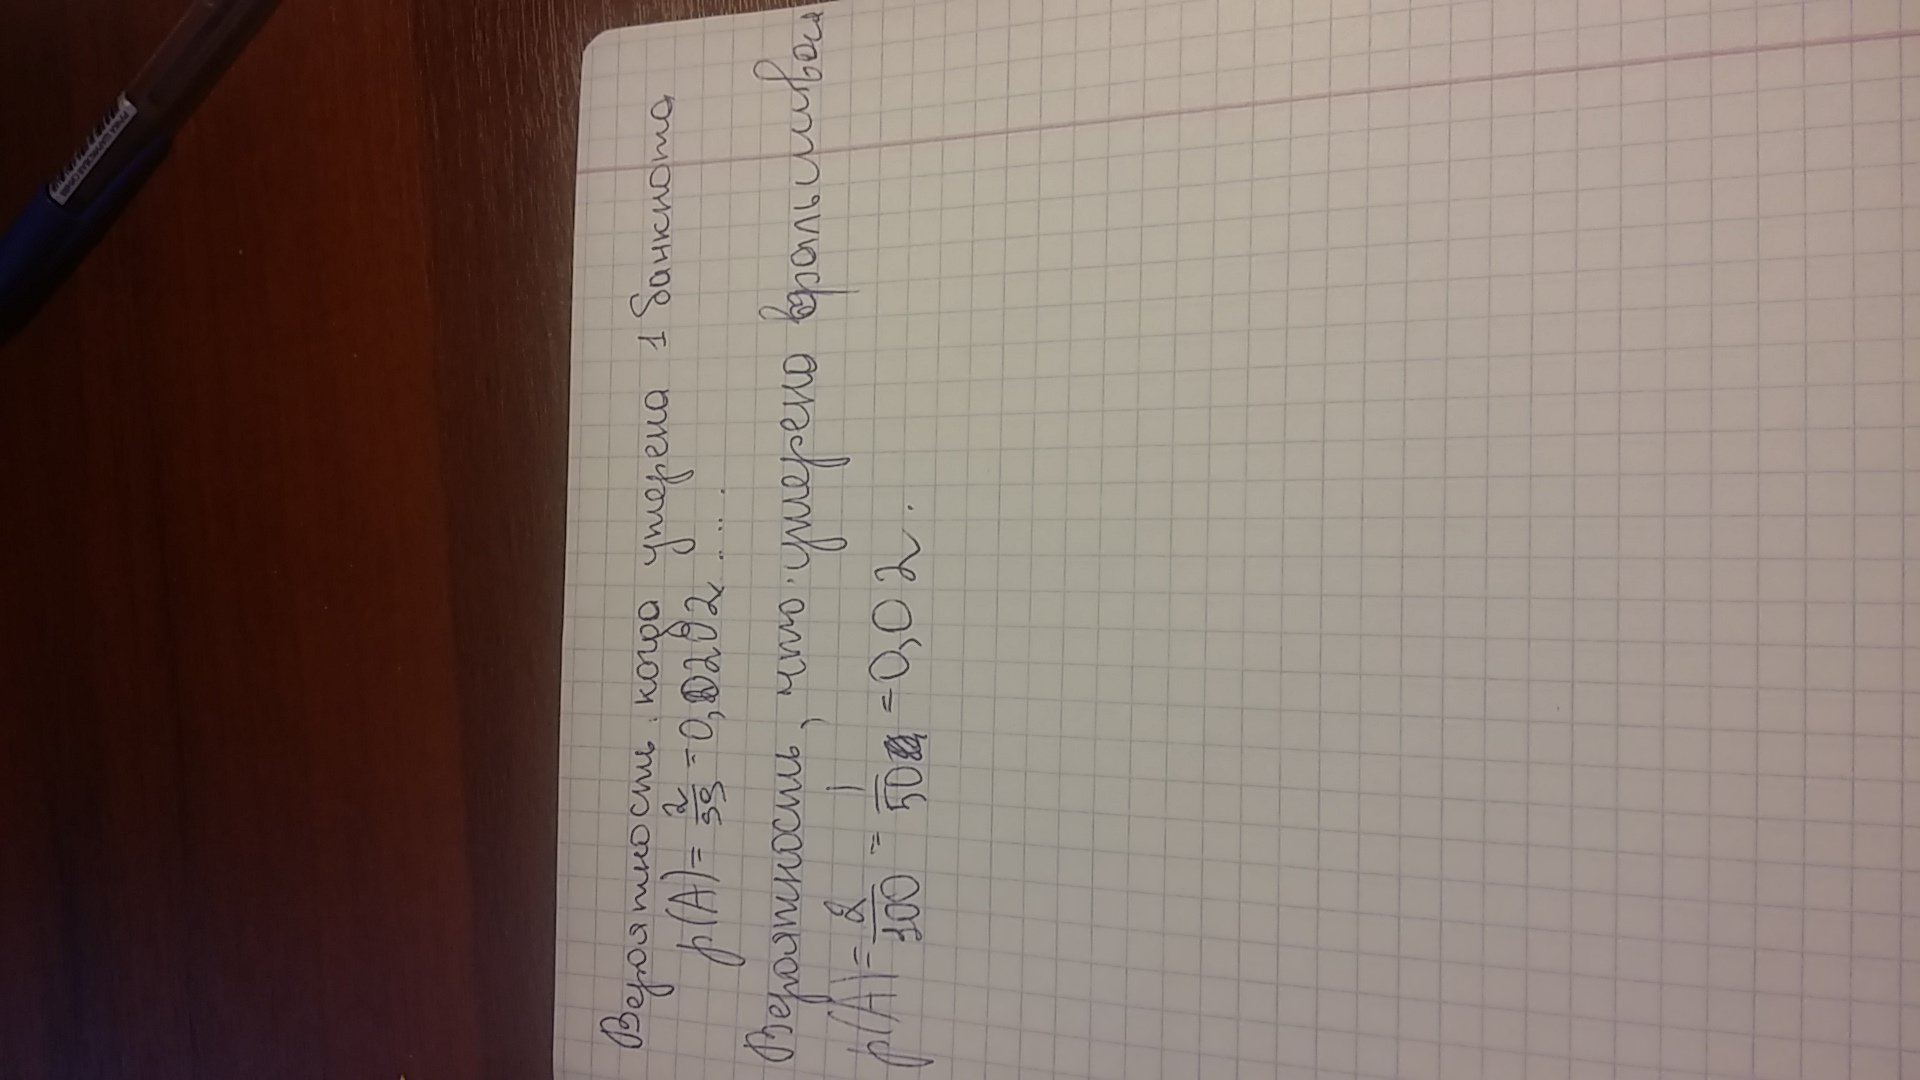 Вероятность когда утерена 1 банкнота
p(A) = 2/99 = 0,0202....
Вероятность, что утерена фальшивая
p(A) = 2/100 = 1/50 = 0,02.